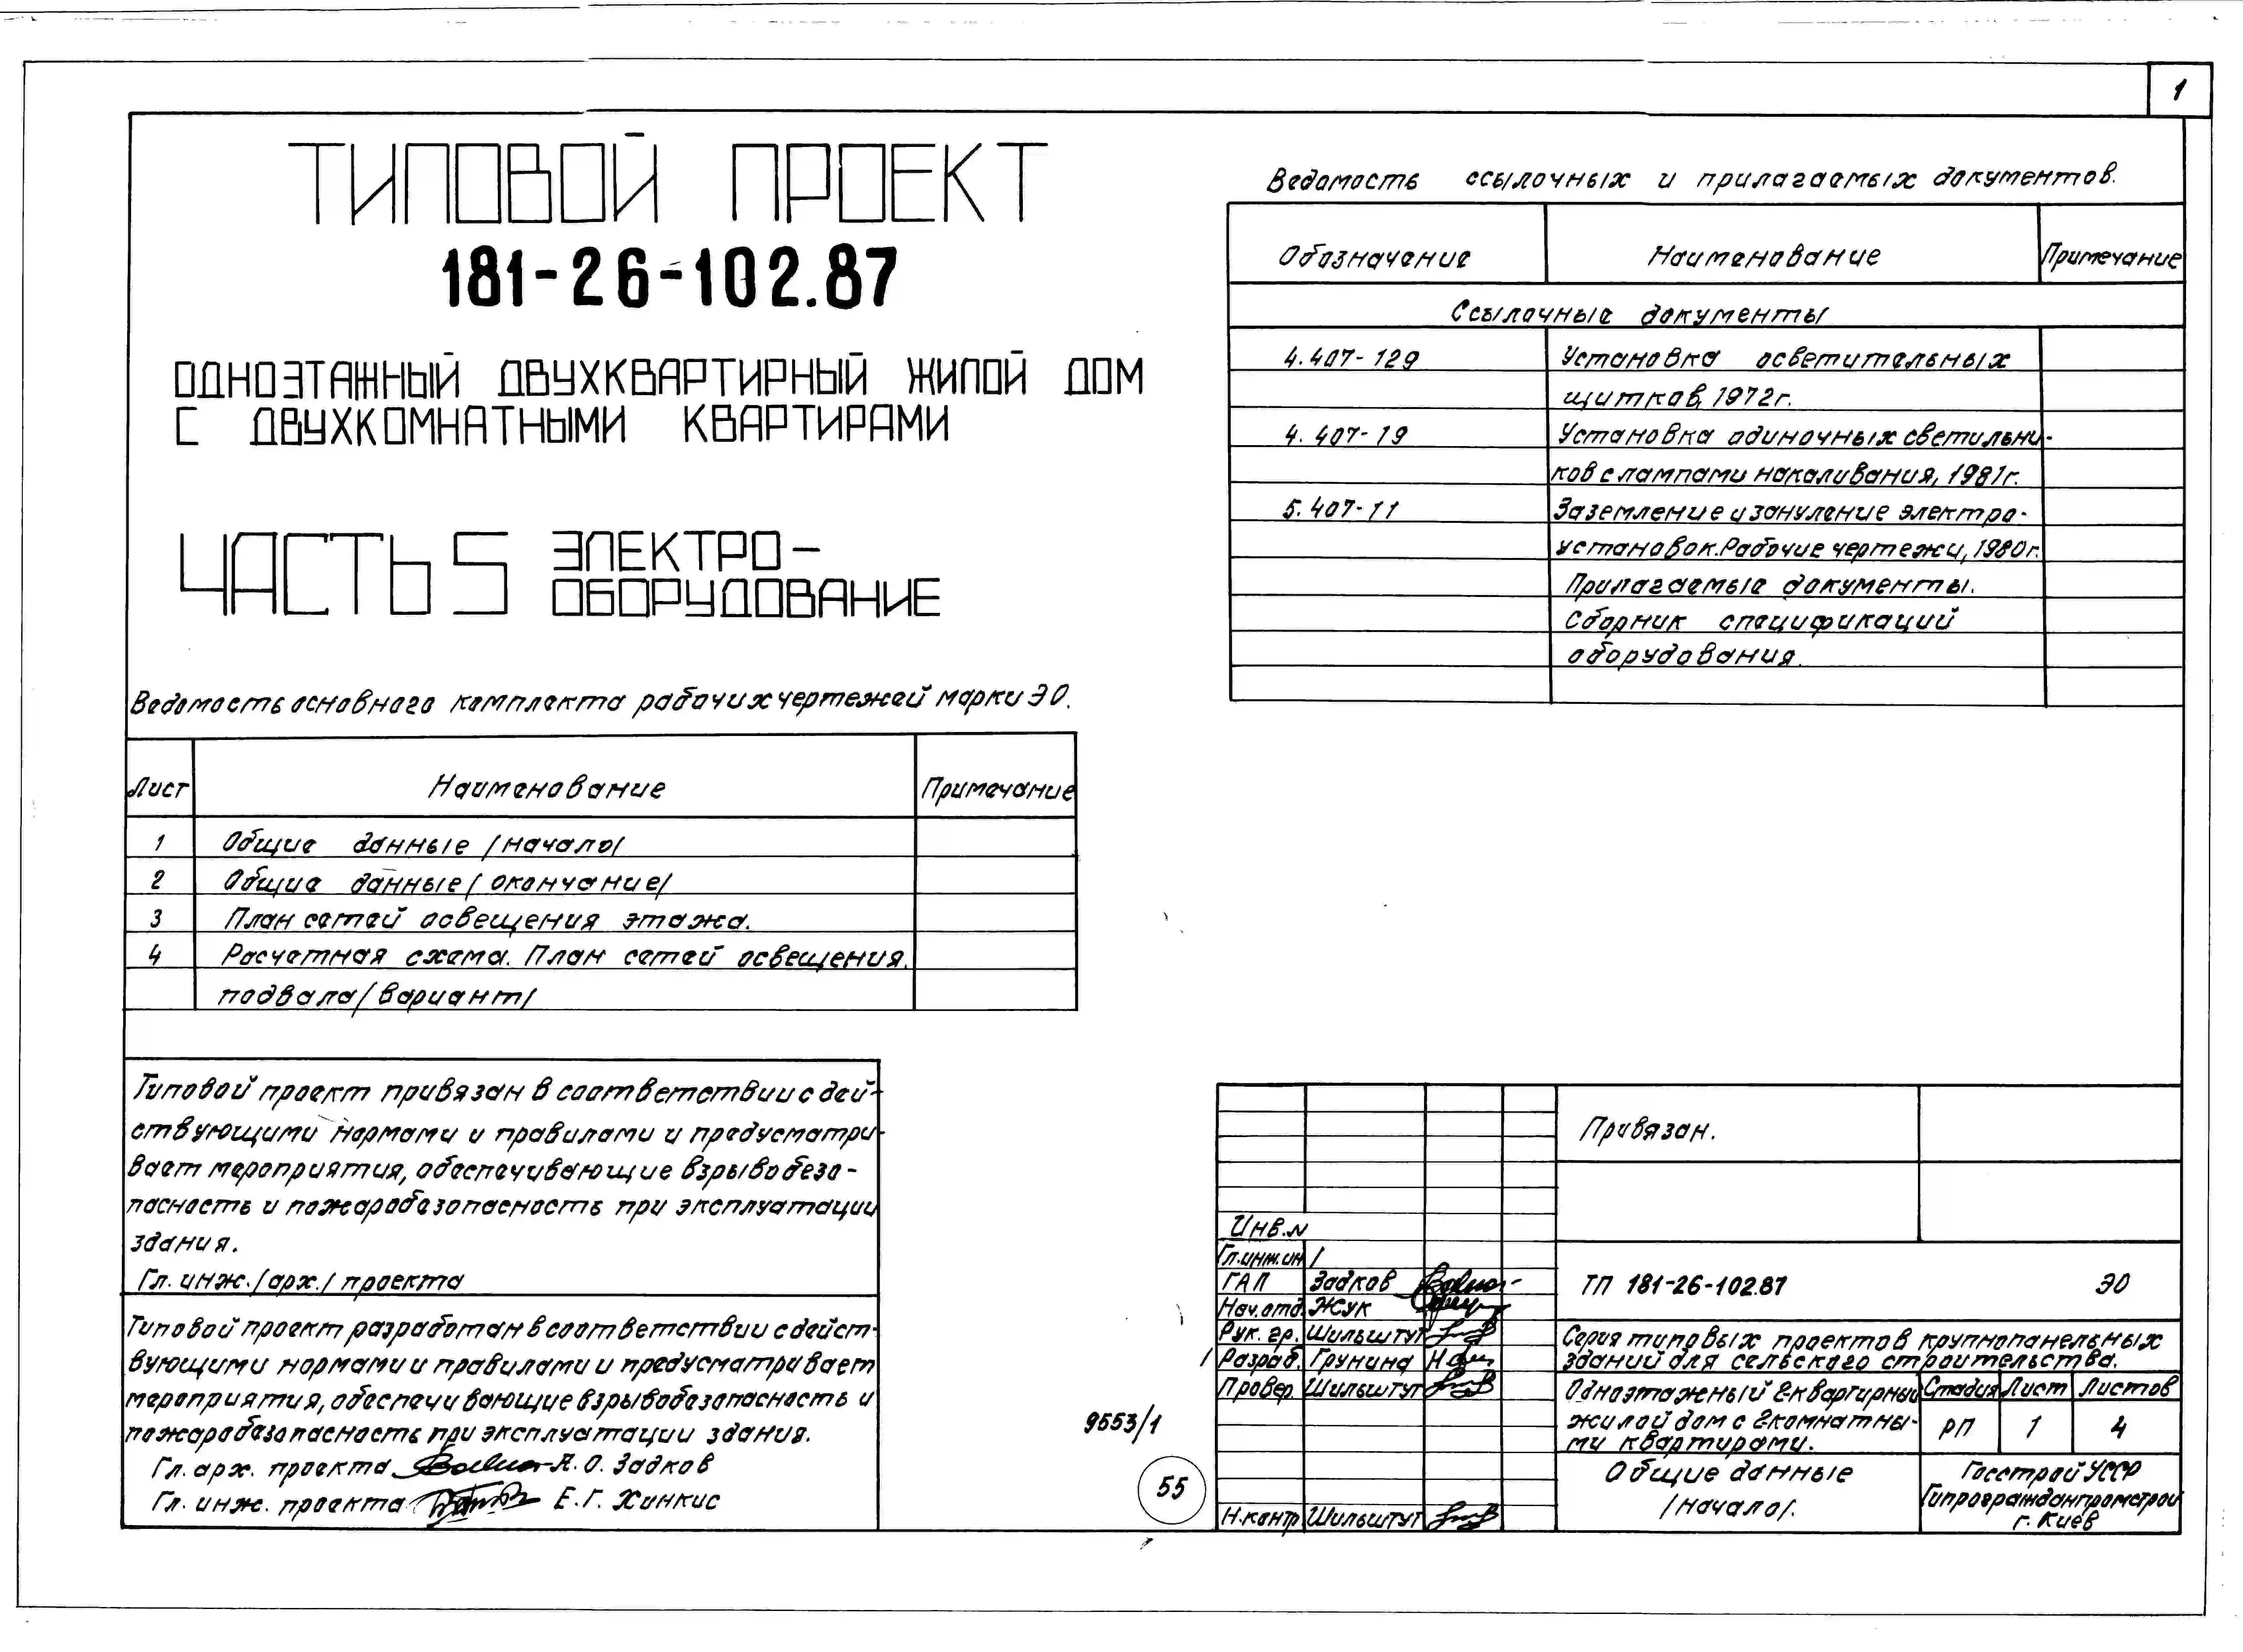 1
ТИПОВОЙ ПРОЕКТ
181-26-102.87
ОДНОЭТАЖНЫЙ ДВУХКВАРТИРНЫЙ ЖИЛОЙ ДОМ
С ДВУХКОМНАТНЫМИ КВАРТИРАМИ
ЧАСТЬ 5 ЭЛЕКТРО-
ОБОРУДОВАНИЕ
Ведомость основного комплекта рабочих чертежей марки ЭО.
Лист Наименование Примечание
1 Общие данные /начало/
2 Общие данные/ окончание/
3 План сетей освещения этажа.
4 Расчетная схема. План сетей освещения.
подвала/вариант/
Типовой проект привязан в соответствии с дей-
ствующими нормами и правилами и предусматри-
вает мероприятия, обеспечивающие взрывобезо-
пасность и пожаробезопасность при эксплуатации
здания.
Гл. инж./арх./ проекта
Типовой проект разработан в соответствии с дейст-
вующими нормами и правилами и предусматривает
мероприятия, обеспечивающие взрывобезопасность и
пожаробезопасность при эксплуатации здания.
Гл. арх. проекта А. О. Задков
Гл. инж. проекта Е. Г. Хинкис
Ведомость ссылочных и прилагаемых документов.
Обозначение Наименование Примечание
Ссылочные документы
4.407-129 Установка осветительных
щитков, 1972г.
4.407-19 Установка одиночных светильни-
ков с лампами накаливания, 1981г.
5.407-11 Заземление и зануление электро-
установок. Рабочие чертежи, 1980г.
Прилагаемые документы.
Сборник спецификаций
оборудования.
9553/1
55
Привязан.
Инв.№
Гл.инж.ин
ГАП Задков
Нач.отд. Жук
Рук. гр. Шильштут
Разраб. Грунина
Провер. Шильштут
Н.контр Шильштут
ТП 181-26-102.87 ЭО
Серия типовых проектов крупнопанельных
зданий для сельского строительства.
Одноэтажный 2-квартирный
жилой дом с 2комнатны-
ми квартирами.
Стадия Лист Листов
РП 1 4
Общие данные
/начало/.
Госстрой УССР
Гипрогражданпромстрой
г. Киев